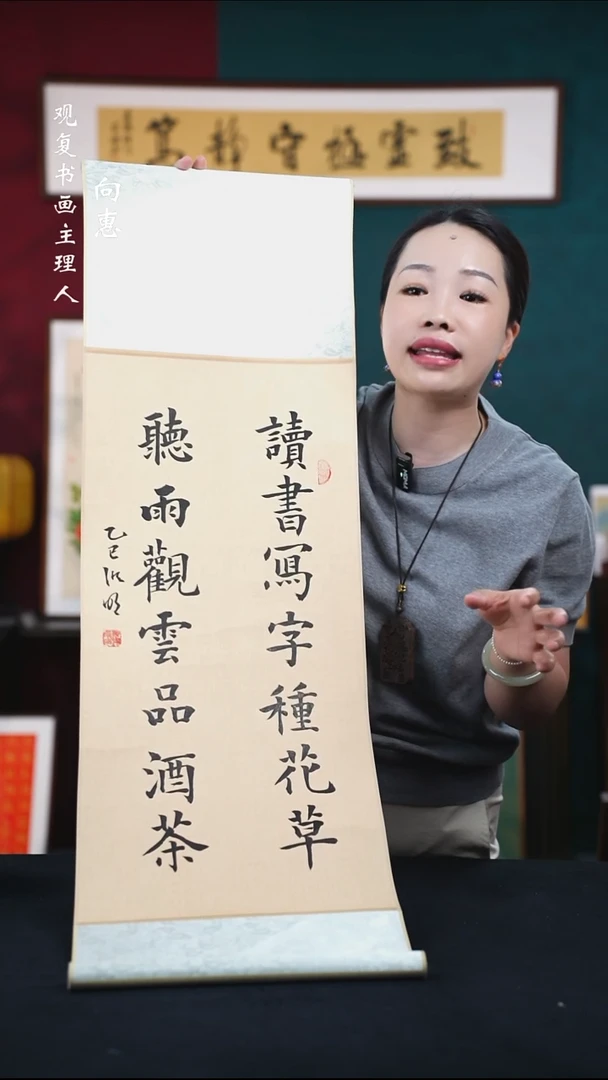 观复书画主理人
向惠
致虚極守靜篤
讀書寫字種花草
聽雨觀雲品酒茶
乙巳